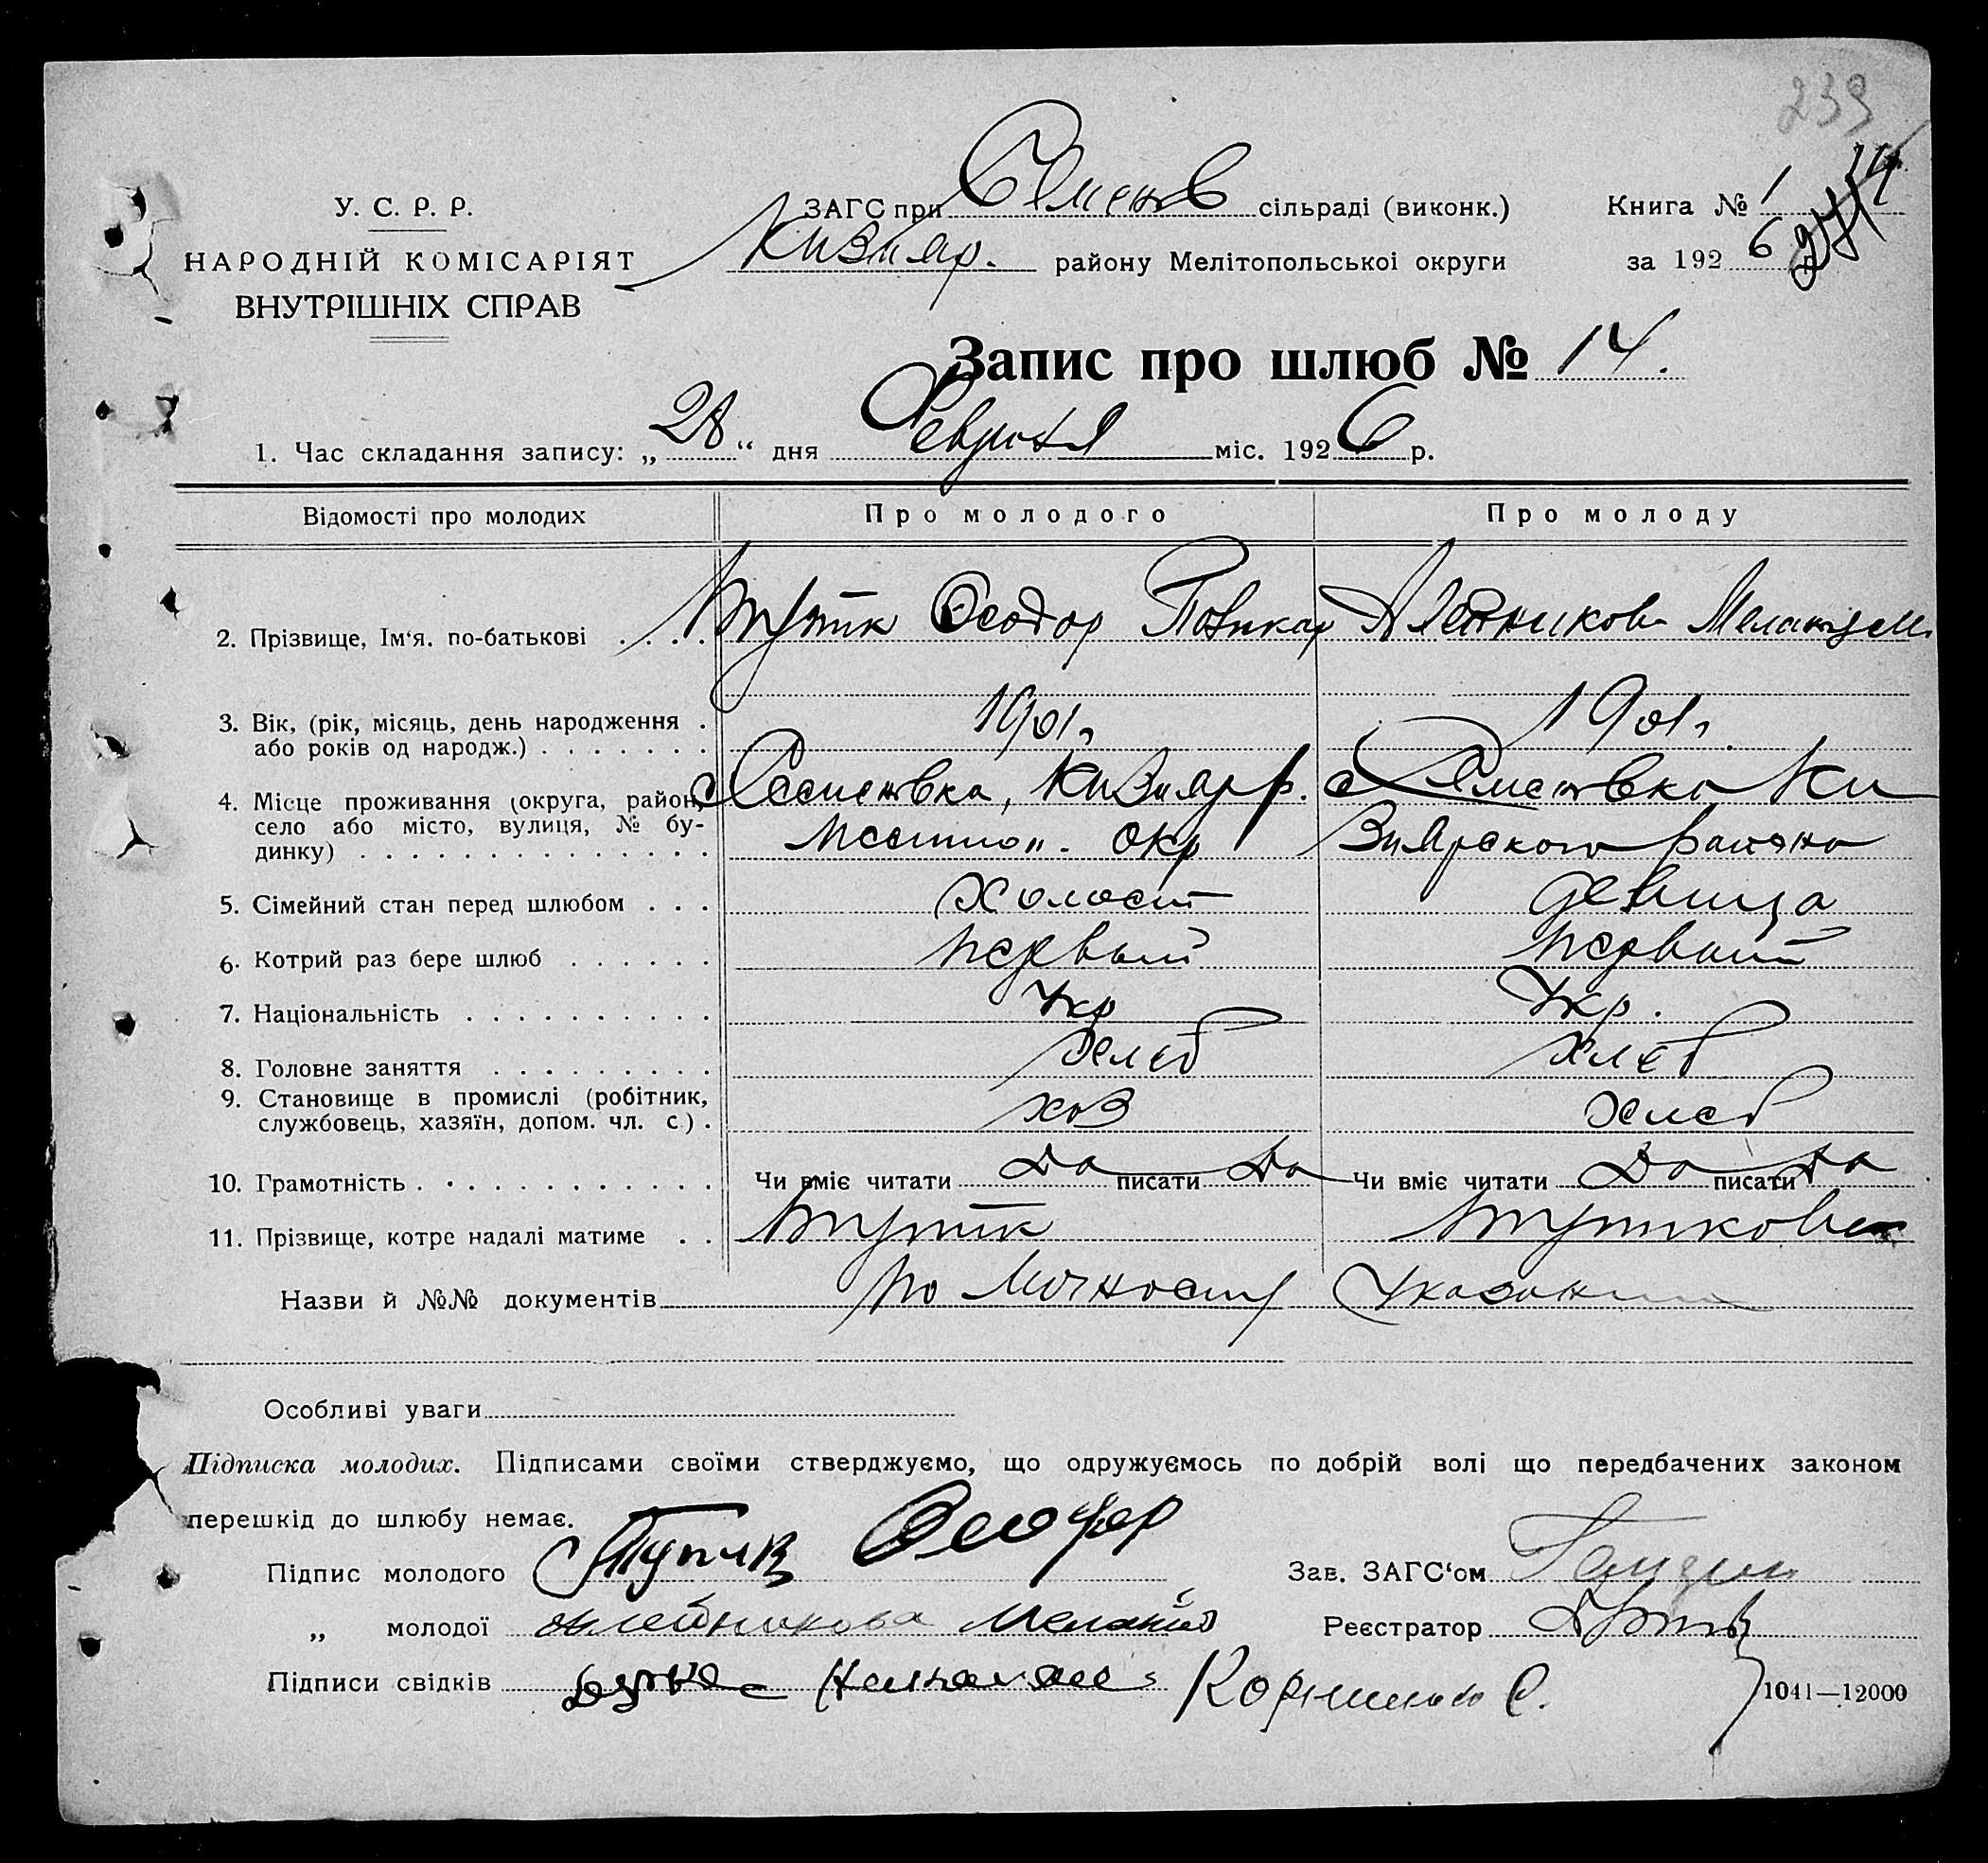 239
У. С. Р. Р.
НАРОДНІЙ КОМІСАРІЯТ
ВНУТРІШНІХ СПРАВ
ЗАГС при Семенов сільраді (виконк.)
Кизияр. району Мелітопольської округи
Книга № 1
за 1926
Запис про шлюб № 14.
1. Час складання запису: „28“ дня Февраля міс. 1926 р.
Відомості про молодих Про молодого Про молоду
2. Прізвище, Ім‘я. по-батькові . . . . Тупик Феодор Олейникова Мелания
3. Вік, (рік, місяць, день народження . 1901г. 1901г.
або років од народж.) . . . . . . .
4. Місце проживання (округа, район, с Семеновка, Кизияр р. с Семеновка Ки
село або місто, вулиця, № бу-
динку) . . . . . . . . . . . . . . окр зиярского района
5. Сімейний стан перед шлюбом . . . Холост девица
6. Котрий раз бере шлюб . . . . . . первый первый
7. Національність . . . . . . . . . . Укр Укр.
8. Головне заняття . . . . . . . . . Хлеб Хлеб
9. Становище в промислі (робітник, хоз Хлеб
службовець, хазяїн, допом. чл. с.) .
10. Грамотність . . . . . . . . . . . . Чи вміє читати Да писати Да Чи вміє читати Да писати Да
11. Прізвище, котре надалі матиме . . Тупик Тупикова
Назви й №№ документів по личности указании
Особливі уваги
Підписка молодих. Підписами своїми стверджуємо, що одружуємось по добрій волі що передбачених законом
перешкід до шлюбу немає.
Підпис молодого Тупик Феодор Зав. ЗАГС‘ом
„ молодої Олейникова Мелания Реєстратор
Підписи свідків Корниенко С. 1041—12000